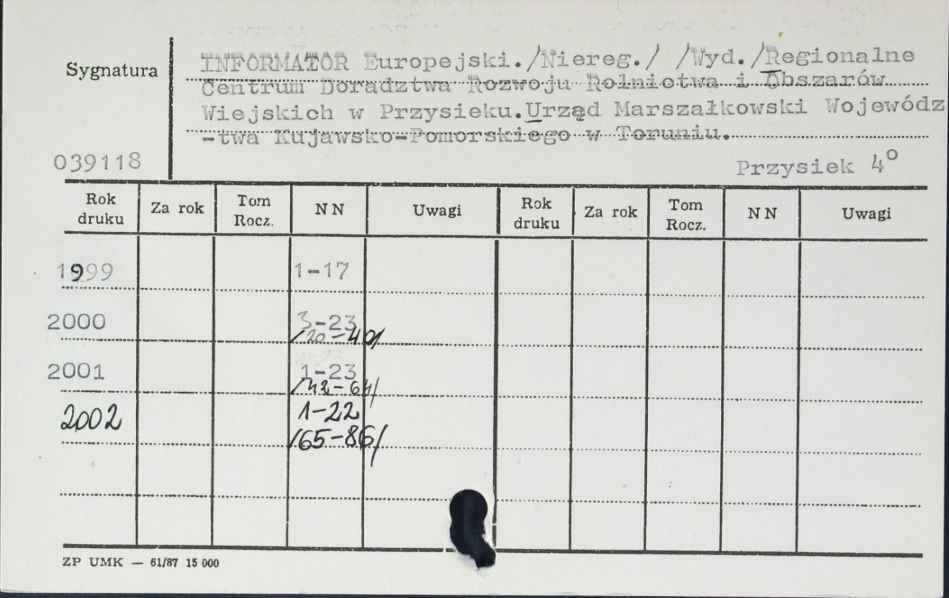 Sygnatura
INFORMATOR Europejski./Niereg./ /Wyd./Regionalne
Centrum Doradztwa Rozwoju Rolnictwa i Obszarów
Wiejskich w Przysieku.Urząd Marszałkowski Wojewódz
-twa Kujawsko-Pomorskiego w Toruniu.
039118
Przysiek 4°
Rok druku Za rok Tom Rocz. NN Uwagi Rok druku Za rok Tom Rocz. NN Uwagi
1999 1-17
2000 3-23
/20-40/
2001 1-23
/42-64/
2002 1-22
/65-86/
ZP UMK — 61/87 15 000